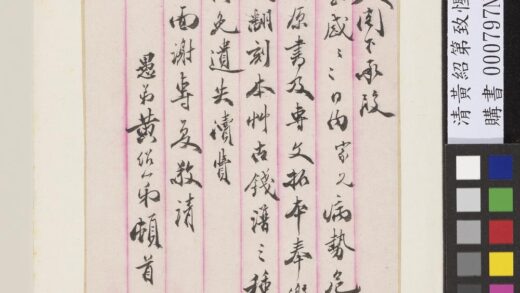 閣下承假
感〻三日內家兄病勢危
原書及專文拓本奉
翻刻本艸古錢譜三種
免遺失瀆費
面謝專肅敬請
愚弟黃紹第頓首
清黃紹第致
購書 000797N